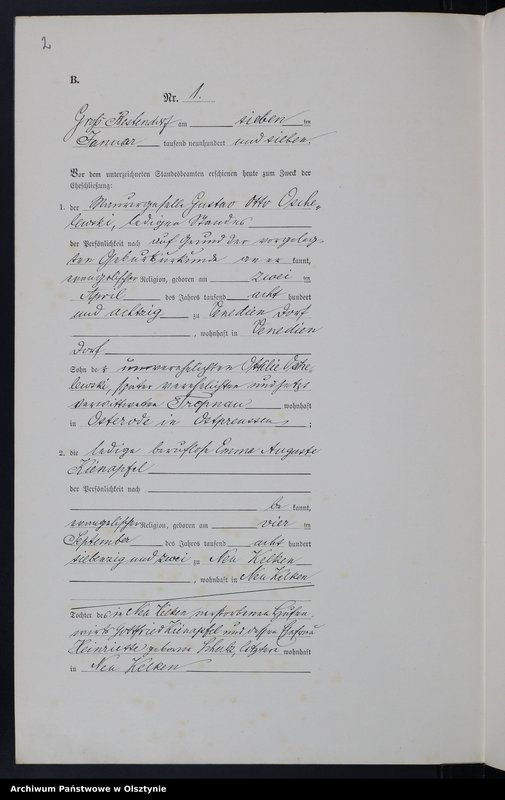 2
B.
Nr. 1.
Groß Bestendorf am sieben ten
Januar tausend neunhundert und sieben.
Vor dem unterzeichneten Standesbeamten erschienen heute zum Zweck der
Eheschließung:
1. der Maurergeselle Gustav Otto Osche-
lewski, ledigen Standes
der Persönlichkeit nach auf Grund der vorgeleg-
ten Geburtsurkunde an er kannt,
evangelischer Religion, geboren am zwei ten
April des Jahres tausend acht hundert
und achtzig zu Venedien Dorf
, wohnhaft in Venedien
Dorf
Sohn der unverehelichten Ottilie Osche-
lewski, später verehelichten und jetzt
verwittweten wohnhaft
in Osterode in Ostpreussen ;
2. die ledige berufslose Emma Auguste
Kienapfel
der Persönlichkeit nach
be kannt,
evangelischer Religion, geboren am vier ten
September des Jahres tausend acht hundert
siebenzig und zwei zu Neu Kelken
, wohnhaft in Neu Kelken
Tochter des in Neu Kelken verstorbenen Hufen-
wirts Gottfried Kienapfel und dessen Ehefrau
Henriette geborne Schulz, letztere wohnhaft
in Neu Kelken
Archiwum Państwowe w Olsztynie